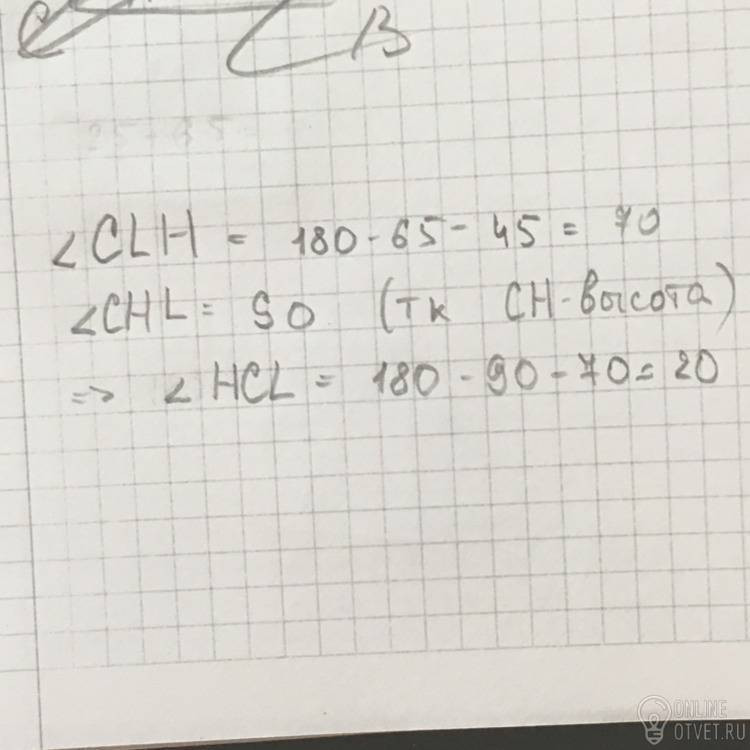 C B
∠CLH = 180 - 65 - 45 = 70
∠CHL = 90 (тк CH-высота)
=> ∠HCL = 180 - 90 - 70 = 20
ONLINE
OTVET.RU